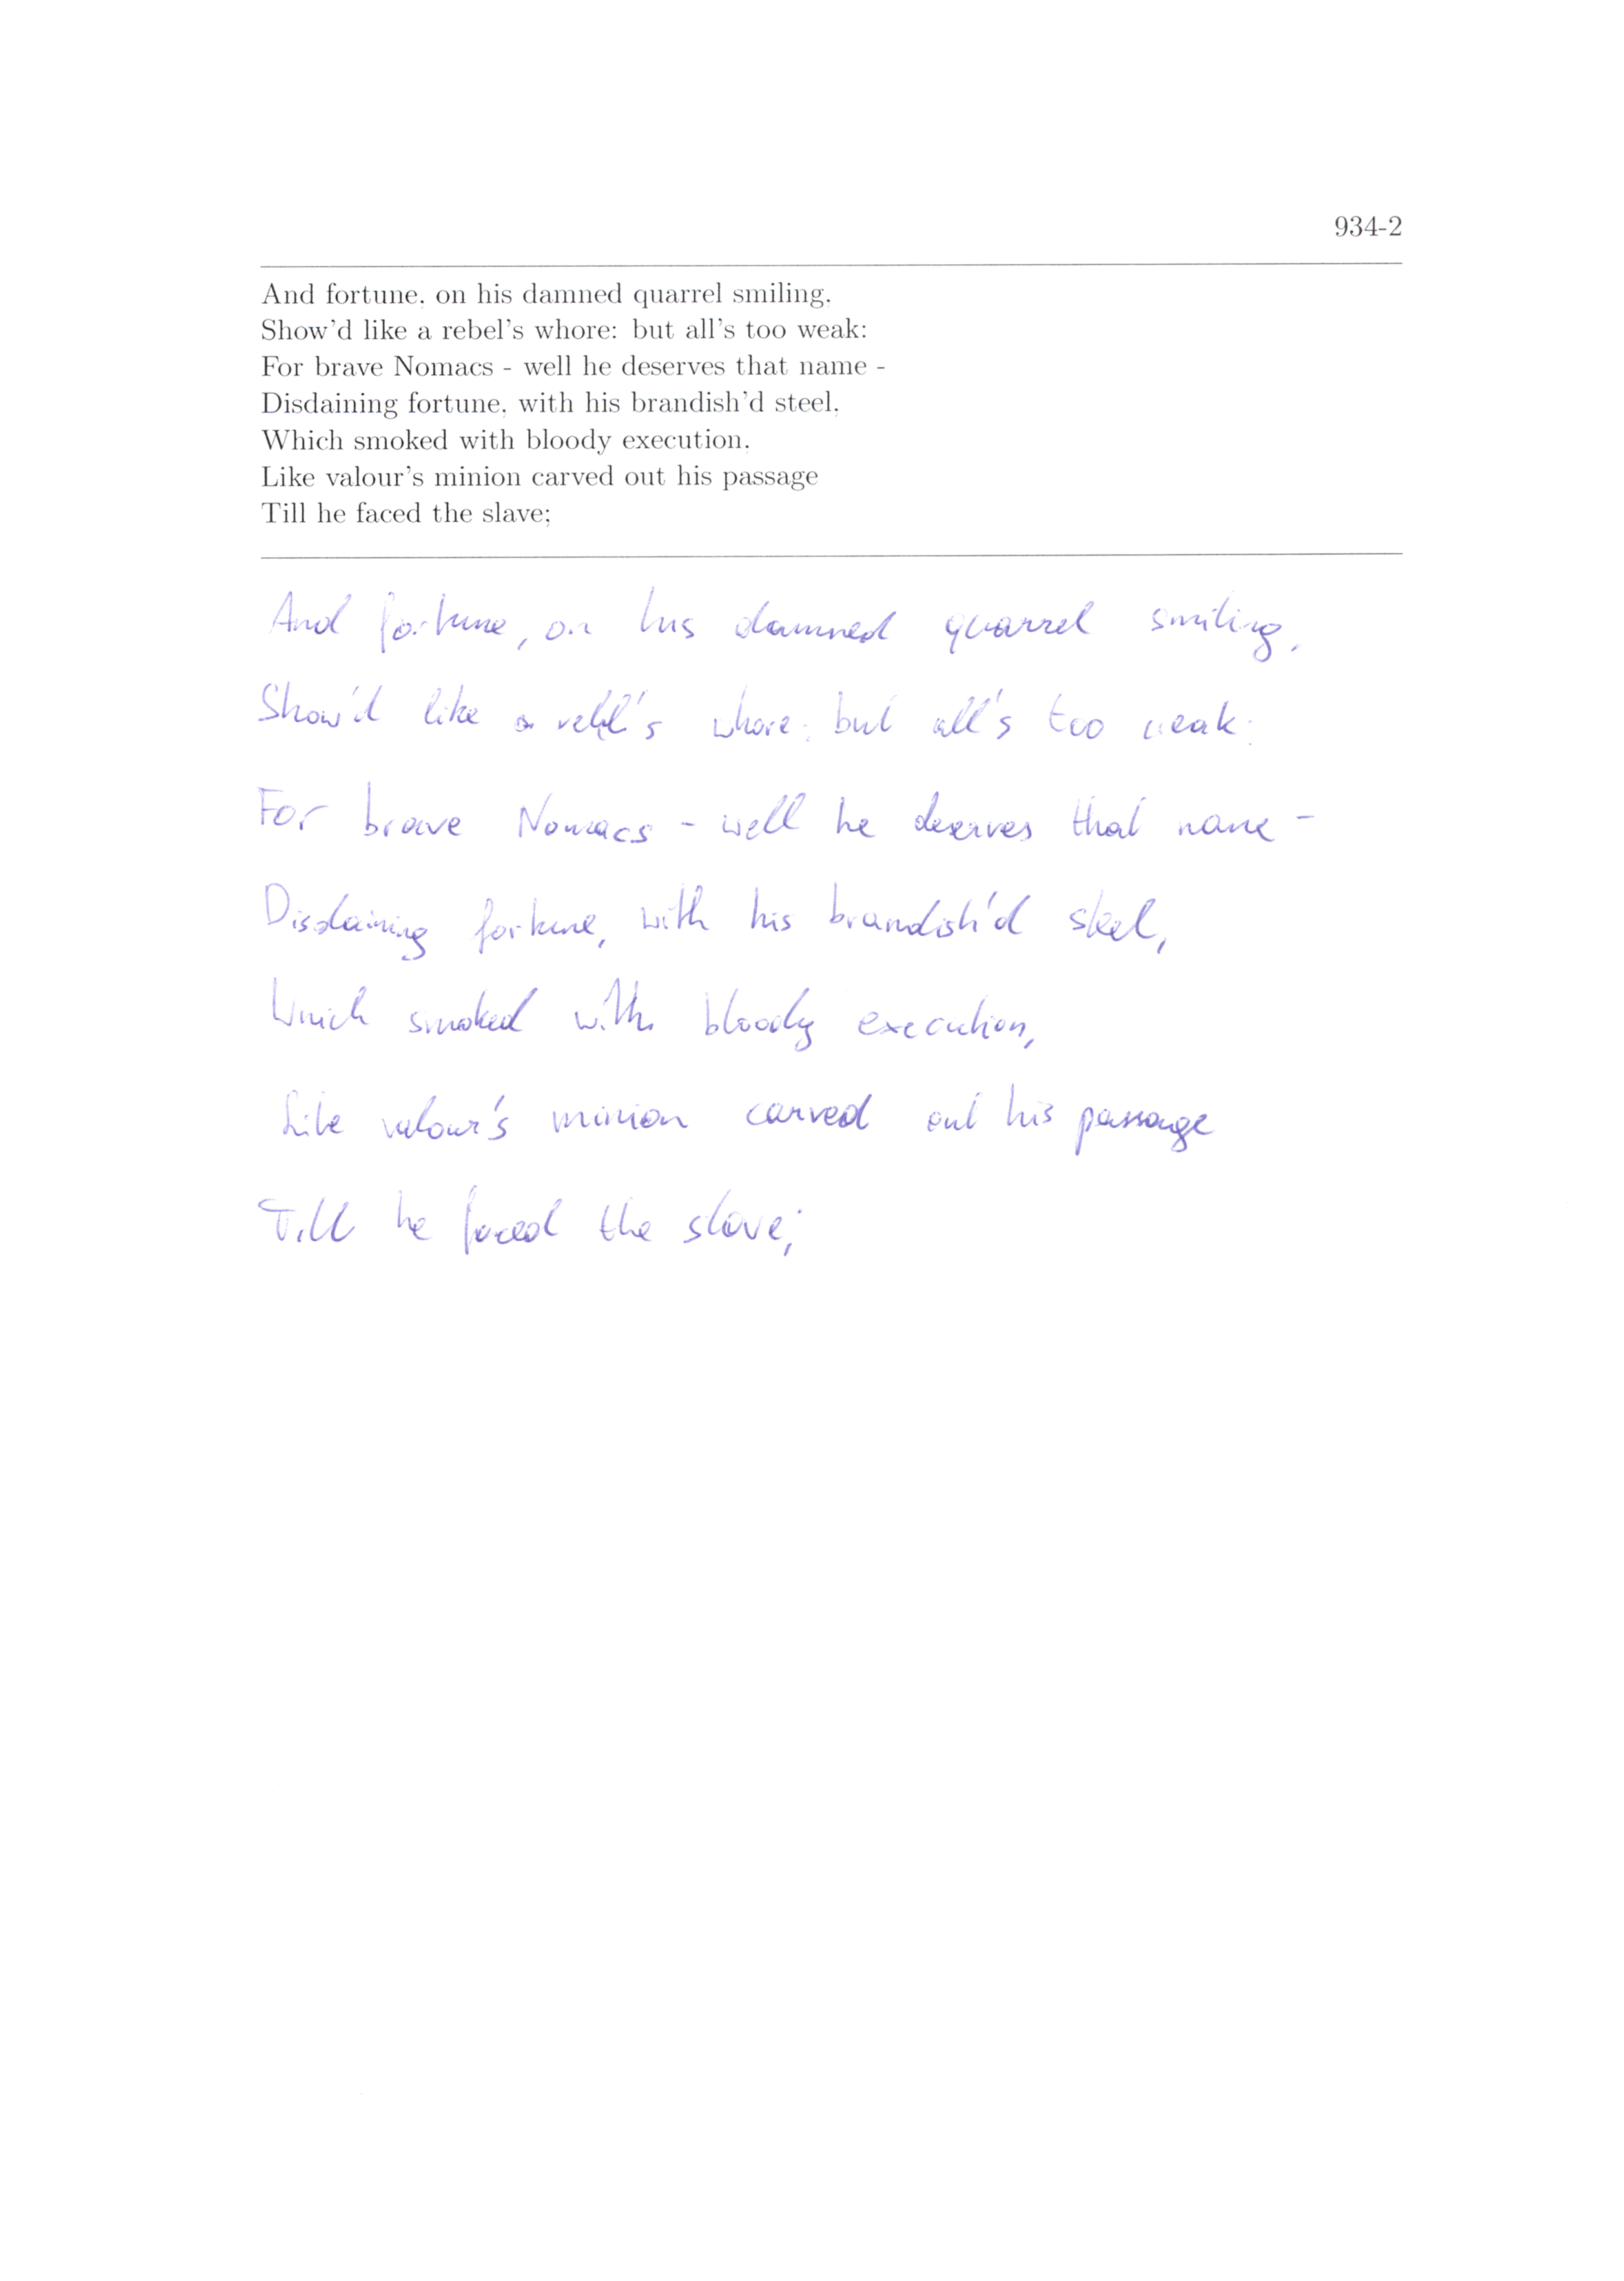 934-2
And fortune, on his damned quarrel smiling,
Show'd like a rebel's whore: but all's too weak:
For brave Nomacs - well he deserves that name -
Disdaining fortune, with his brandish'd steel,
Which smoked with bloody execution,
Like valour's minion carved out his passage
Till he faced the slave;
And fortune, on his damned quarrel smiling,
Show'd like a rebel's whore: but all's too weak:
For brave Nomacs - well he deserves that name -
Disdaining fortune, with his brandish'd steel,
Which smoked with bloody execution,
Like valour's minion carved out his passage
Till he faced the slave;